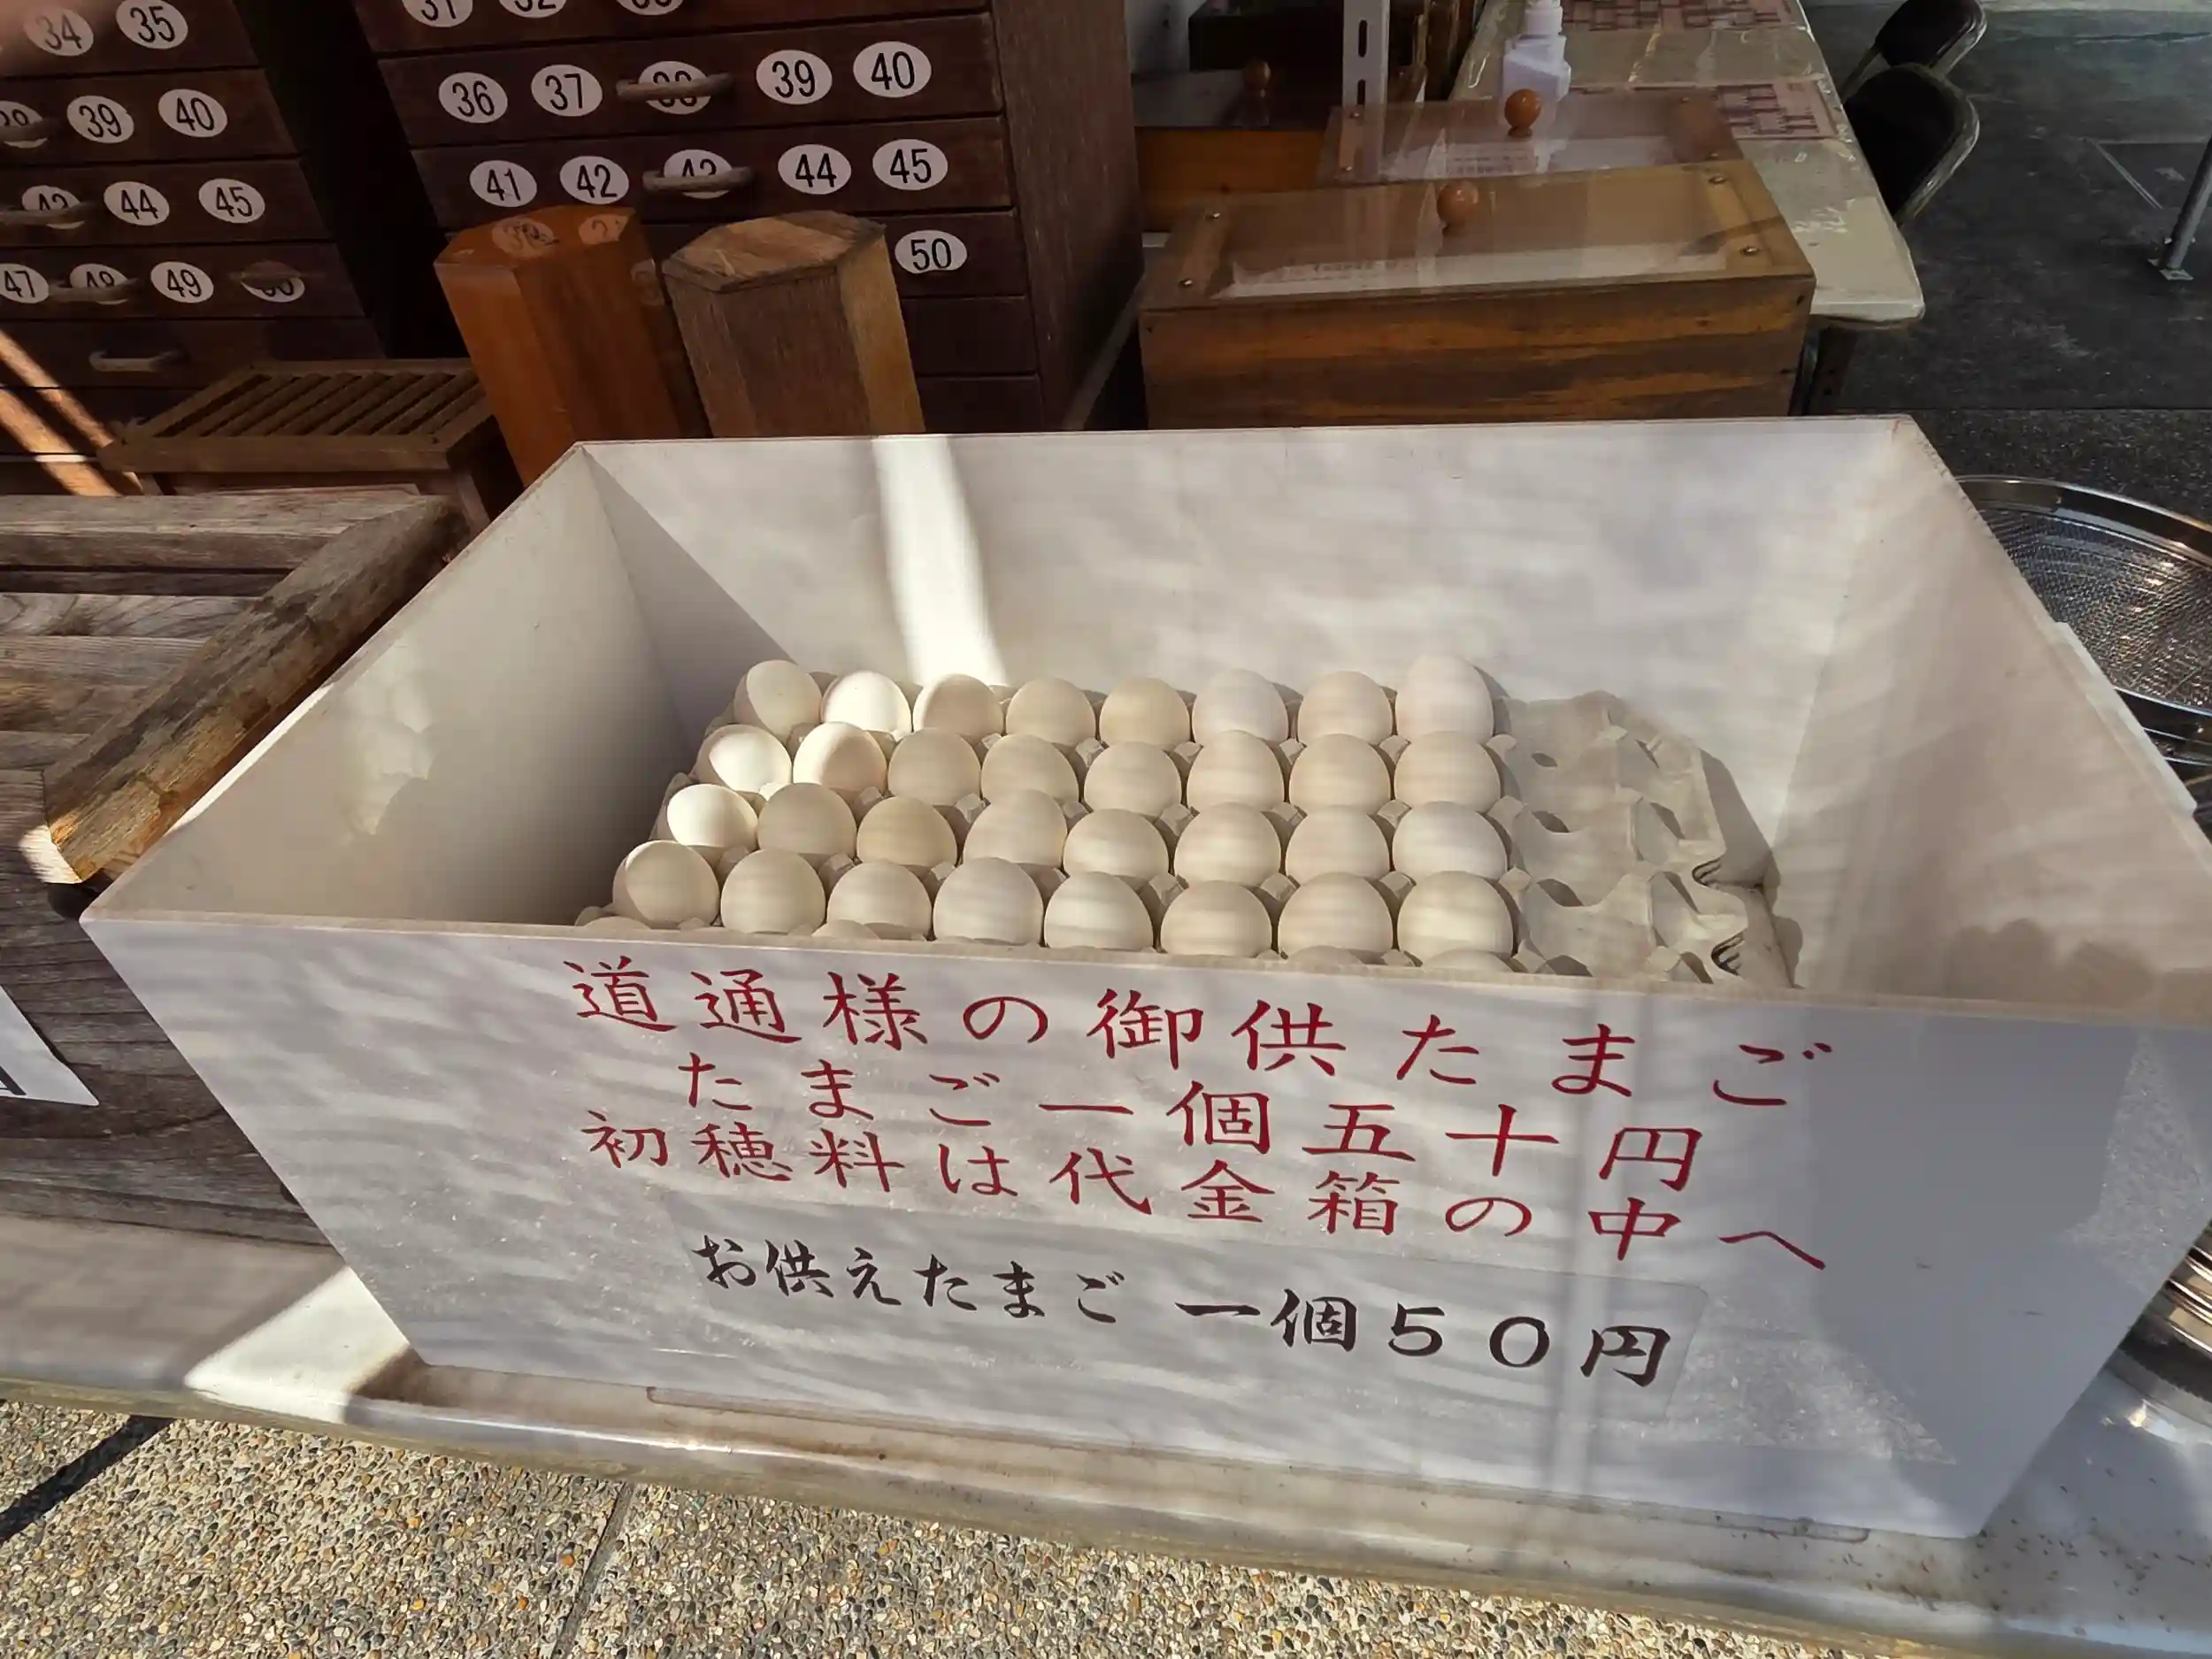 34 35
39 40
44 45
47 48 49
31 32 33
36 37 38 39 40
41 42 43 44 45
50
道通様の御供たまご
たまご一個五十円
初穂料は代金箱の中へ
お供えたまご 一個50円